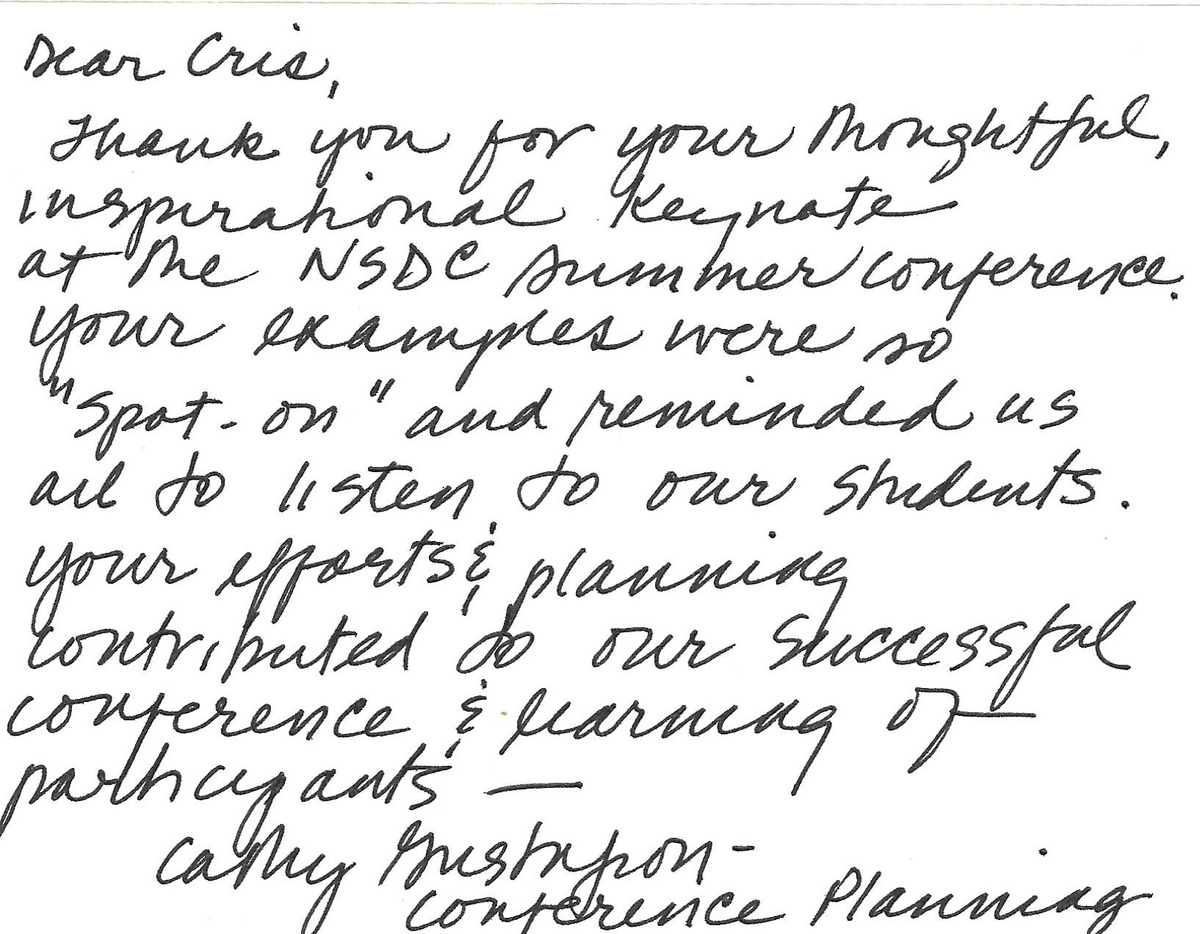 Dear Cris,
Thank you for your thoughtful,
inspirational Keynote
at the NSDC summer conference.
Your examples were so
"Spot-on" and reminded us
all to listen to our students.
Your efforts & planning
contributed to our successful
conference & learning of
participants —
Cathy Gustafson -
Conference Planning